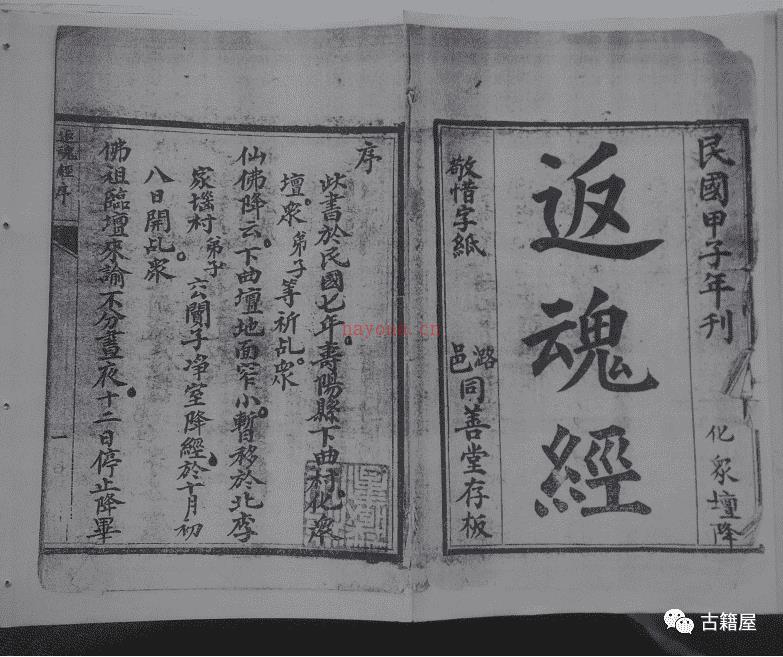 民國甲子年刊
化衆壇降
返魂經
敬惜字紙
潞邑同善堂存板
序
此書於民國七年。壽陽縣下曲村化衆
壇。衆弟子等祈乩。衆
仙佛降云。下曲壇地面窄小。暫移於北李
家𡎺村弟子 公閏子净室降經。於十月初
八日開乩。衆
佛祖臨壇來諭不分晝夜。十二日停止降畢
返魂經序
一
hayona.cn
古籍屋